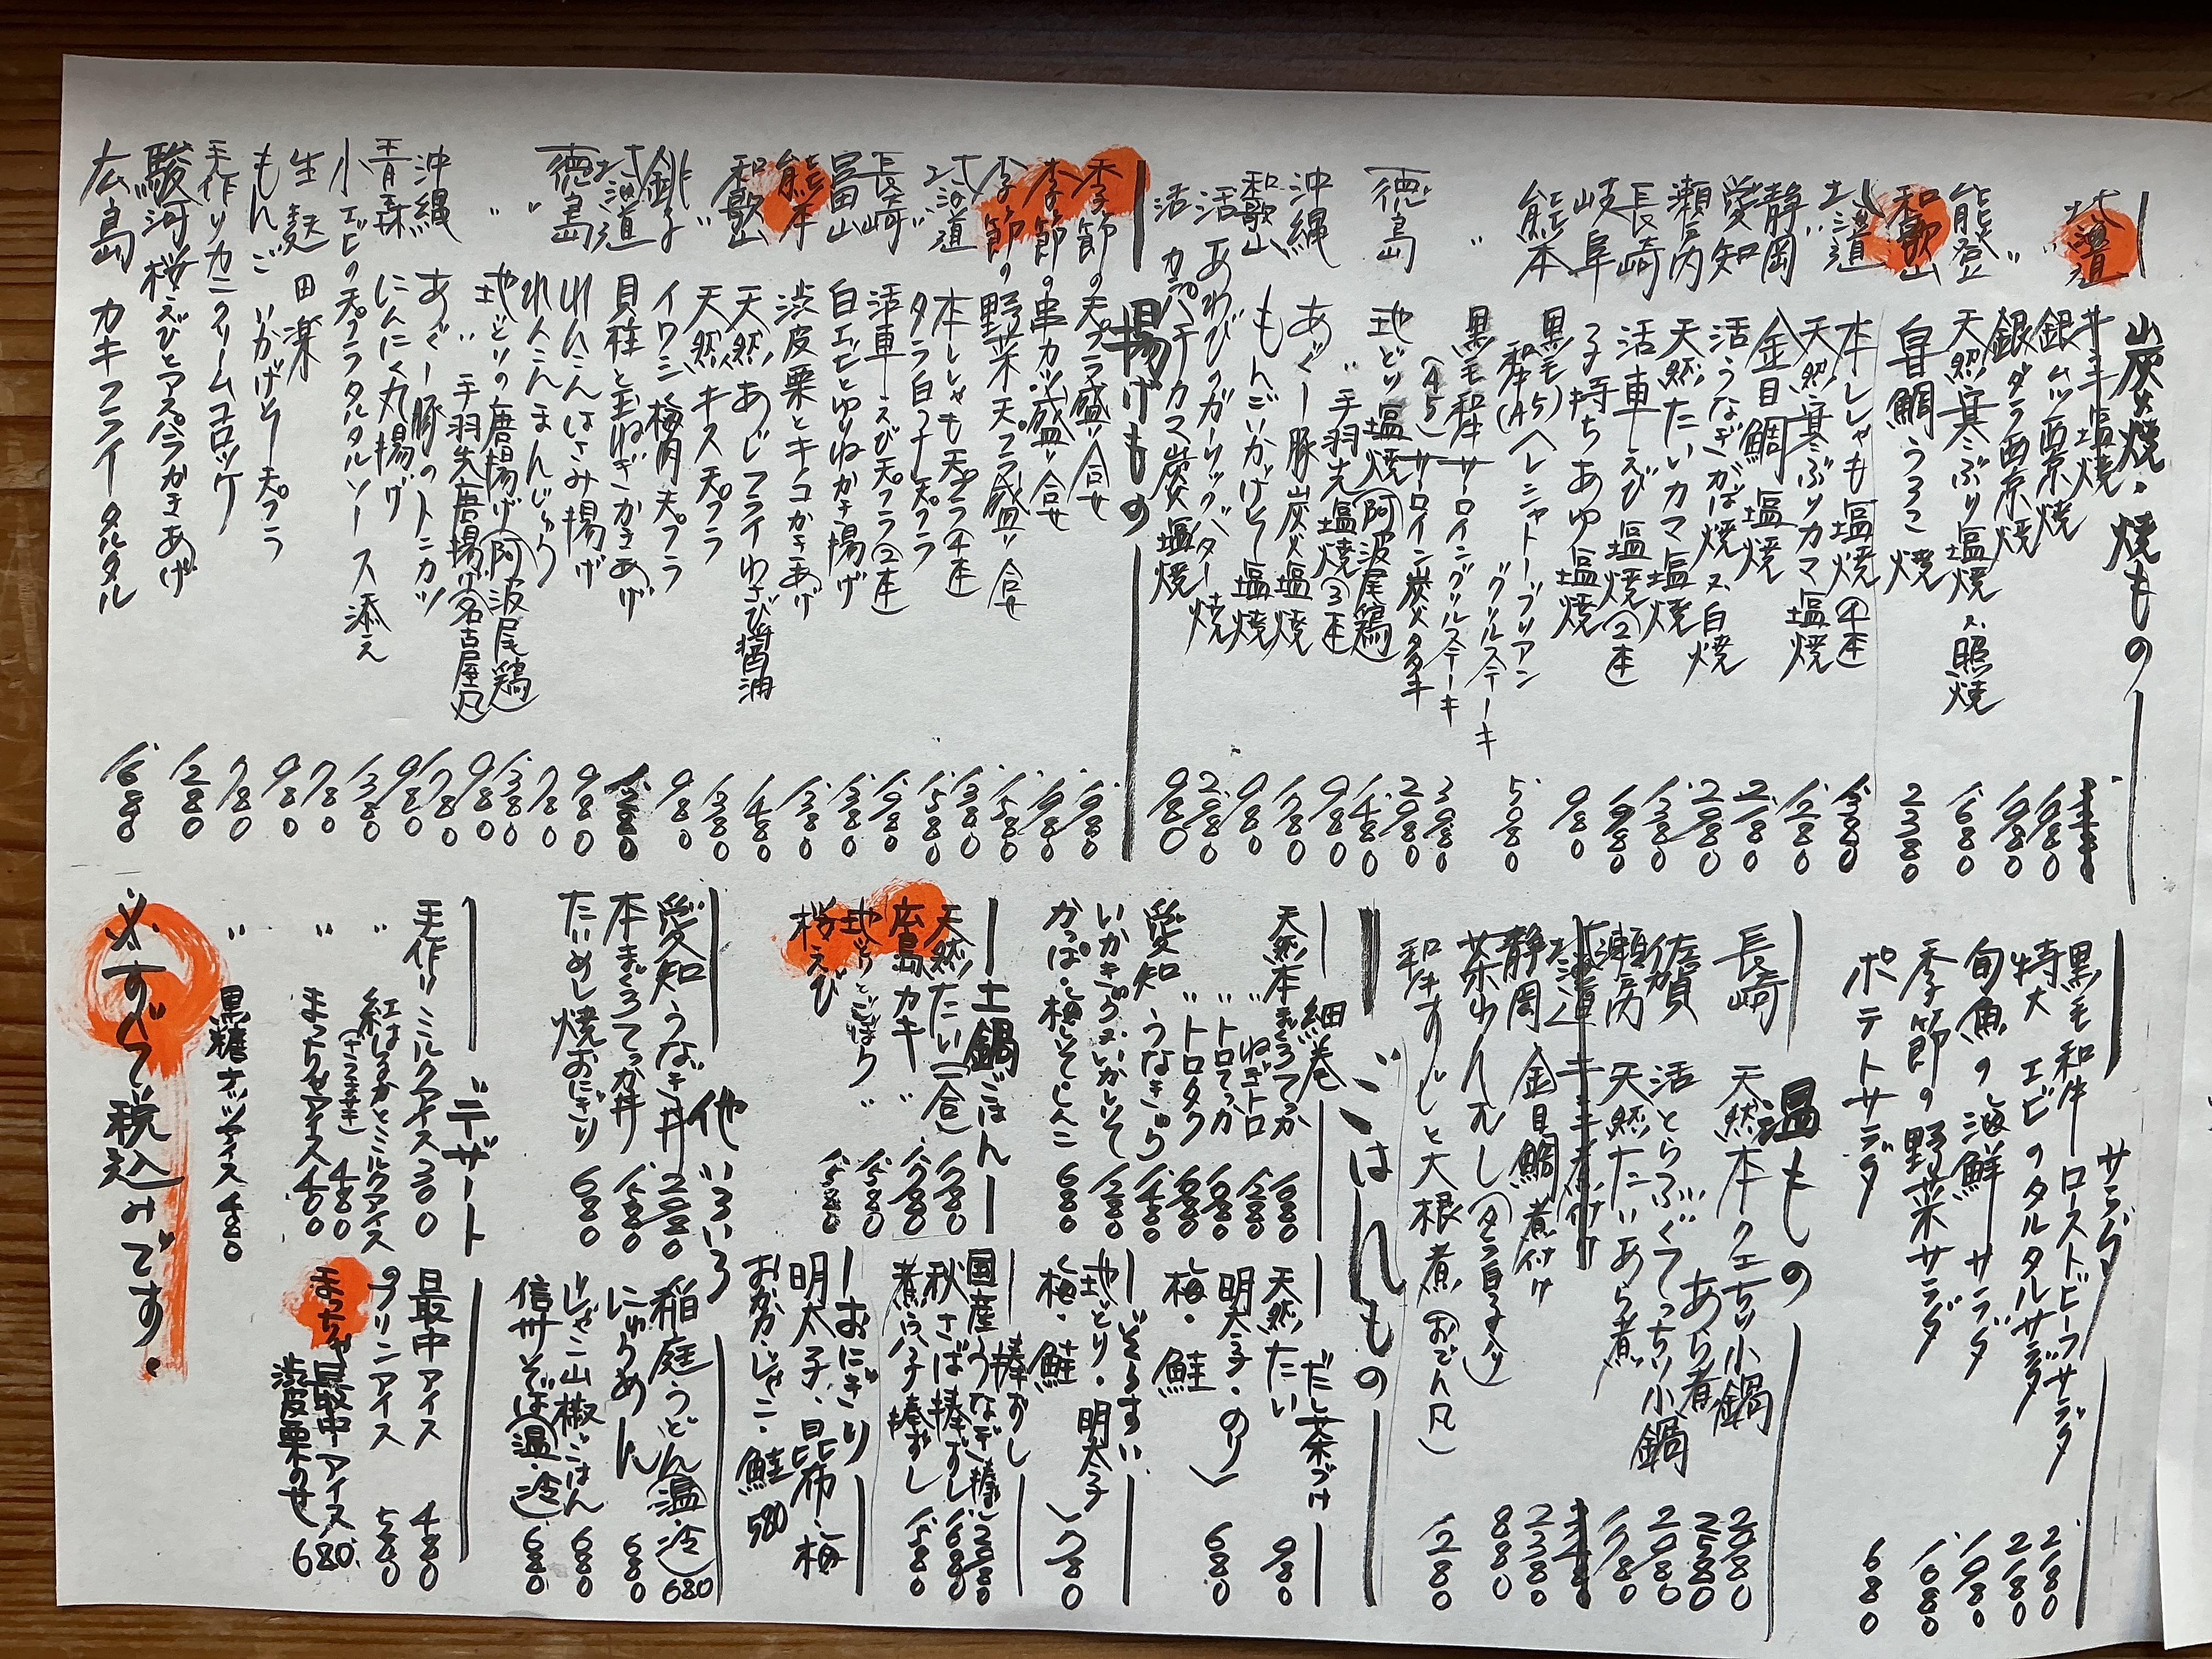 炭火焼・焼もの
北海道 キンキ塩焼
〃 銀ムツ西京焼 1,980
銀ダラ西京焼 1,980
能登 天然寒ぶり塩焼又照焼 1,680
和歌山 白甘鯛うろこ焼 2,380
北海道 本ししゃも塩焼(4本) 1,380
〃 天然寒ぶりカマ塩焼 1,280
静岡 金目鯛塩焼 2,180
愛知 活うなぎかば焼又白焼 2,980
瀬戸内 天然たいカマ塩焼 1,380
長崎 活車えび塩焼(2本) 1,980
岐阜 子持ちあゆ塩焼 980
熊本 黒毛和牛(A5)ヘレシャトーブリアン
〃グリルステーキ 5,080
〃 黒毛和牛サーロイングリルステーキ 3,080
(A5)サーロイン炭火タタキ 2,980
徳島 地どり塩焼(阿波尾鶏) 1,480
〃 手羽先塩焼(3本) 980
沖縄 あぐー豚炭火塩焼 1,780
和歌山 もんごいかげそ塩焼 980
活あわびのガーリックバター焼 2,980
活カンパチカマ炭塩焼 980
揚げもの
季節の天プラ盛り合せ 1,980
季節の串カツ盛り合せ 1,980
季節の野菜天プラ盛り合せ 1,580
北海道 本ししゃも天プラ(4本) 1,380
〃 タラ白子天プラ 1,580
長崎 活車えび天プラ(2本) 1,980
富山 白エビとゆりねかき揚げ 1,380
熊本 渋皮栗とキノコかきあげ 1,380
和歌山 天然あじフライわさび醤油 1,480
〃 天然キス天プラ 1,380
銚子 イワシ梅肉天プラ 980
北海道 貝柱と玉ねぎかきあげ 1,280
徳島 れんこんはさみ揚げ 980
〃 れんこんまんじゅう 780
〃 地どりの唐揚げ(阿波尾鶏) 1,380
〃 手羽先唐揚げ(名古屋凡) 980
沖縄 あぐー豚のトンカツ 1,780
青森 にんにく丸揚げ 980
小エビの天プラタルタルソース添え 1,380
生麩田楽 780
もんごいかげそ天プラ 980
手作りカニクリームコロッケ 780
駿河桜えびとアスパラかきあげ 1,280
広島 カキフライタルタル 1,680
サラダ
黒毛和牛ローストビーフサラダ 2,180
特大エビのタルタルサラダ 2,180
旬魚の海鮮サラダ 1,980
季節の野菜サラダ 1,080
ポテトサラダ 680
温もの
長崎 天然本クエちり小鍋 2,980
あら煮 2,580
佐賀 活とらふぐてっちり小鍋 2,980
瀬戸内 天然たいあら煮 1,780
北海道 キンキ煮付け
静岡 金目鯛煮付け 2,380
茶わんむし(タラ白子入り) 880
和牛すじと大根煮(おでん凡) 1,280
ごはんもの
細巻
天然本まぐろてっか 1,080
〃 ねぎトロ 1,280
〃トロてっか 1,680
〃トロタク 1,680
愛知 うなきゅう 1,480
いかきゅう又いかしそ 1,280
かっぱ・梅しそ・しんこ 680
だし茶づけ
天然たい 980
明太子・のり
梅・鮭 680
ぞうすい
地どり・明太子
梅・鮭 780
土鍋ごはん
天然たい(一合) 1,980
広島カキ 〃 1,780
地どりとごぼう 〃 1,580
桜えび 1,580
棒ずし
国産うなぎ棒ずし 2,980
秋さば棒ずし 1,680
煮穴子棒ずし 1,580
おにぎり
明太子、昆布、梅
おかか・じゃこ・鮭 580
他いろいろ
愛知うなぎ丼 2,980
本まぐろてっか丼 1,580
たいめし焼おにぎり 680
稲庭うどん(温・冷) 680
にゅうめん 680
じゃこ山椒ごはん 680
信州そば(温・冷) 680
デザート
手作りミルクアイス 300
〃 紅はるかとミルクアイス
(さつまいも) 480
〃 まっちゃアイス 400
〃 黒糖ナッツアイス 480
最中アイス 480
プリンアイス 580
まっちゃ最中アイス
渋皮栗のせ 680
※すべて税込みです。